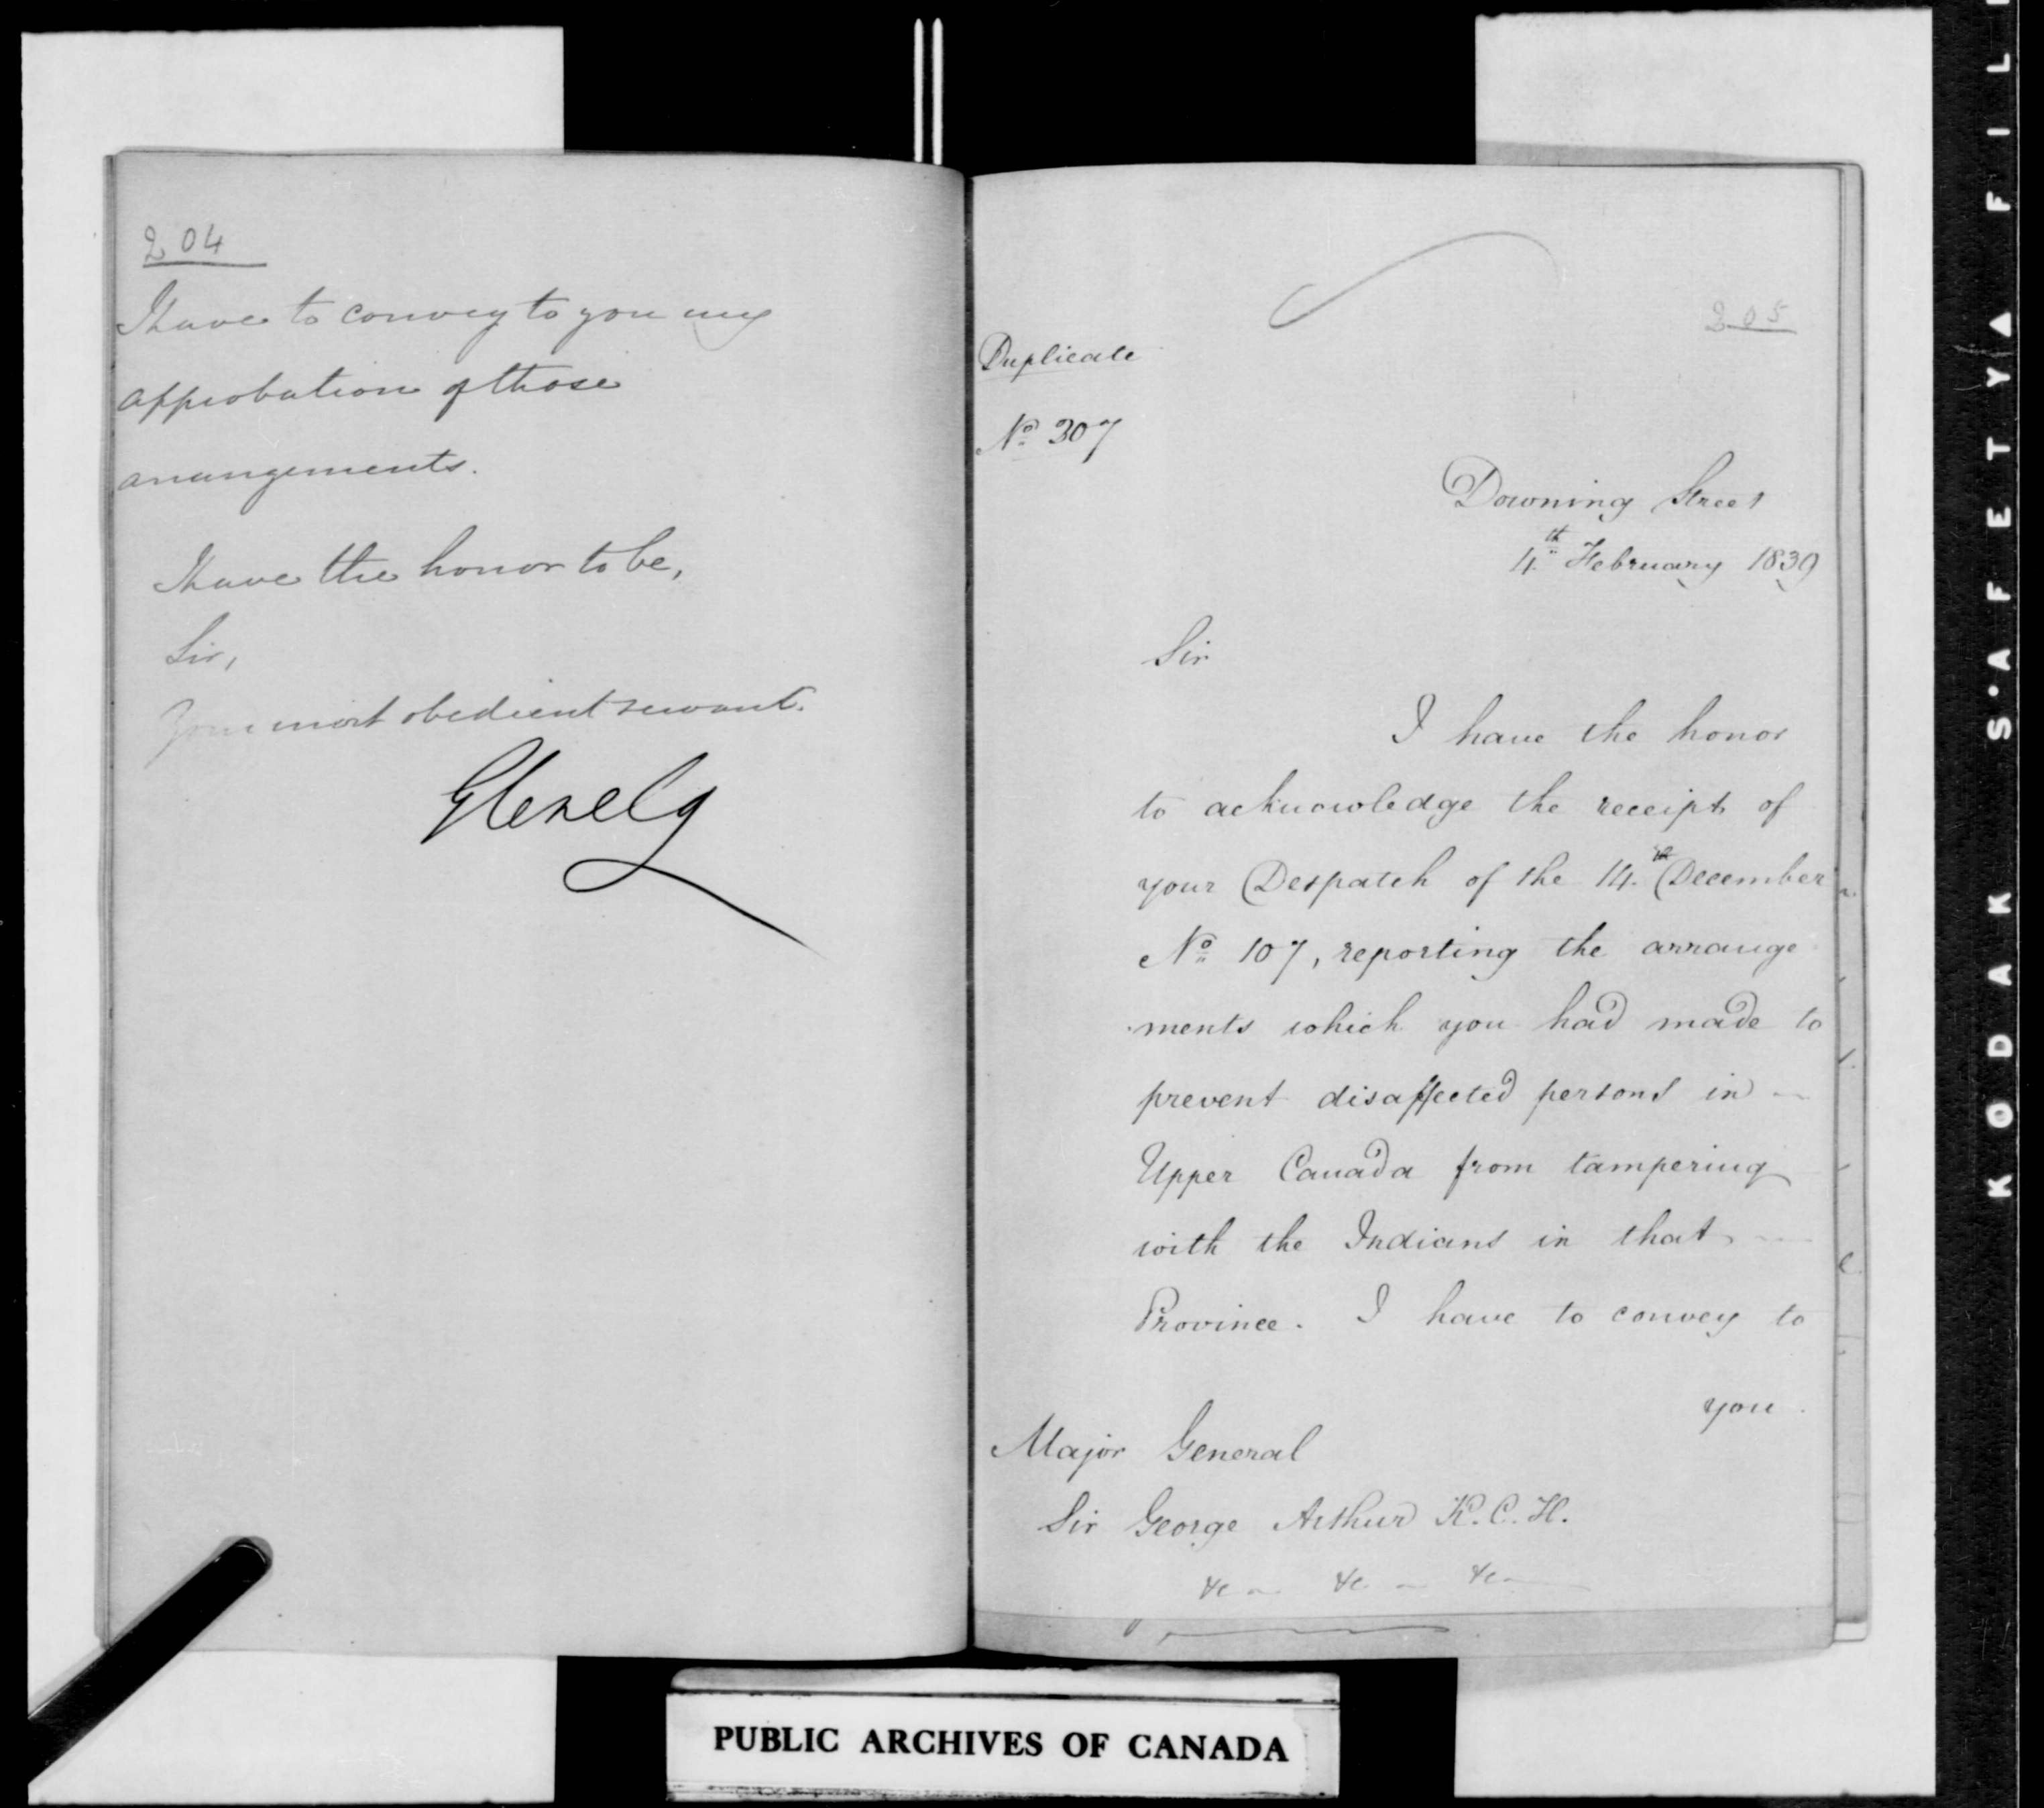 204
I have to convey to you my
approbation of those
arrangements.
I have the honor to be,
Sir,
Your most obedient servant.
Glenelg
205
Duplicate
No. 307
Downing Street
4th February 1839
Sir
I have the honor
to acknowledge the receipt of
your Despatch of the 14th December
No. 107, reporting the arrange
ments which you had made to
prevent disaffected persons in
Upper Canada from tampering
with the Indians in that
Province. I have to convey to
you
Major General
Sir George Arthur K.C.H.
&c &c &c
PUBLIC ARCHIVES OF CANADA
KODAK S·A F E T Y ▲ F I L